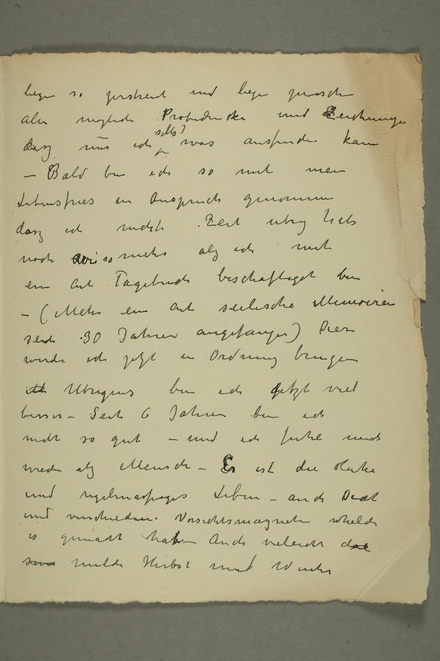 liegen so zerstreut und liegen zwischen
aller mögliche Probedrucke und Zeichnunge
daz nur ich selbst? was ausfinden kann
– Bald bin ich so mit mein
Lebensfries in Anspruch genommen
daz ich nicht Zeit übrig
noch als ich mit
ein Art Tagebuch beschäftiget bin
– (Mehr ein Art seelische Memoiren
seit 30 Jahren angefangen) Diese
werde ich jetzt in Ordnung bringen
Übrigens bin ich jetzt viel
besser – Seit 6 Jahren bin ich
nicht so gut – und ich fühle mich
wieder alz Mensch – Es ist die
und regelmässiges Leben – auch Diät
und verschiedene
is gemacht haben Auch vieleicht
milde Herbst und Winter